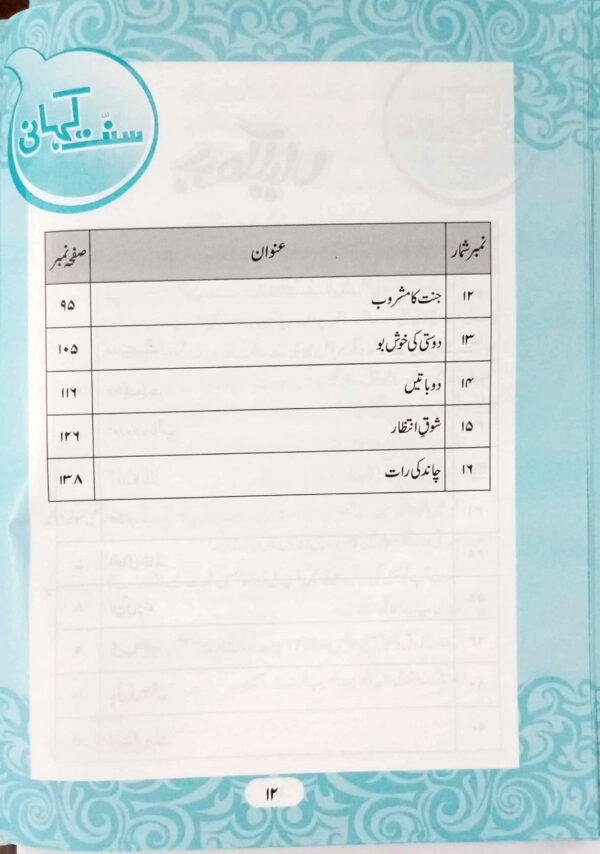 سنّت کہانی
نمبر شمار عنوان صفحہ نمبر
۱۲ جنت کا مشروب ۹۵
۱۳ دوستی کی خوش بو ۱۰۵
۱۴ دو باتیں ۱۱۶
۱۵ شوقِ انتظار ۱۲۶
۱۶ چاند کی رات ۱۳۸
۱۲